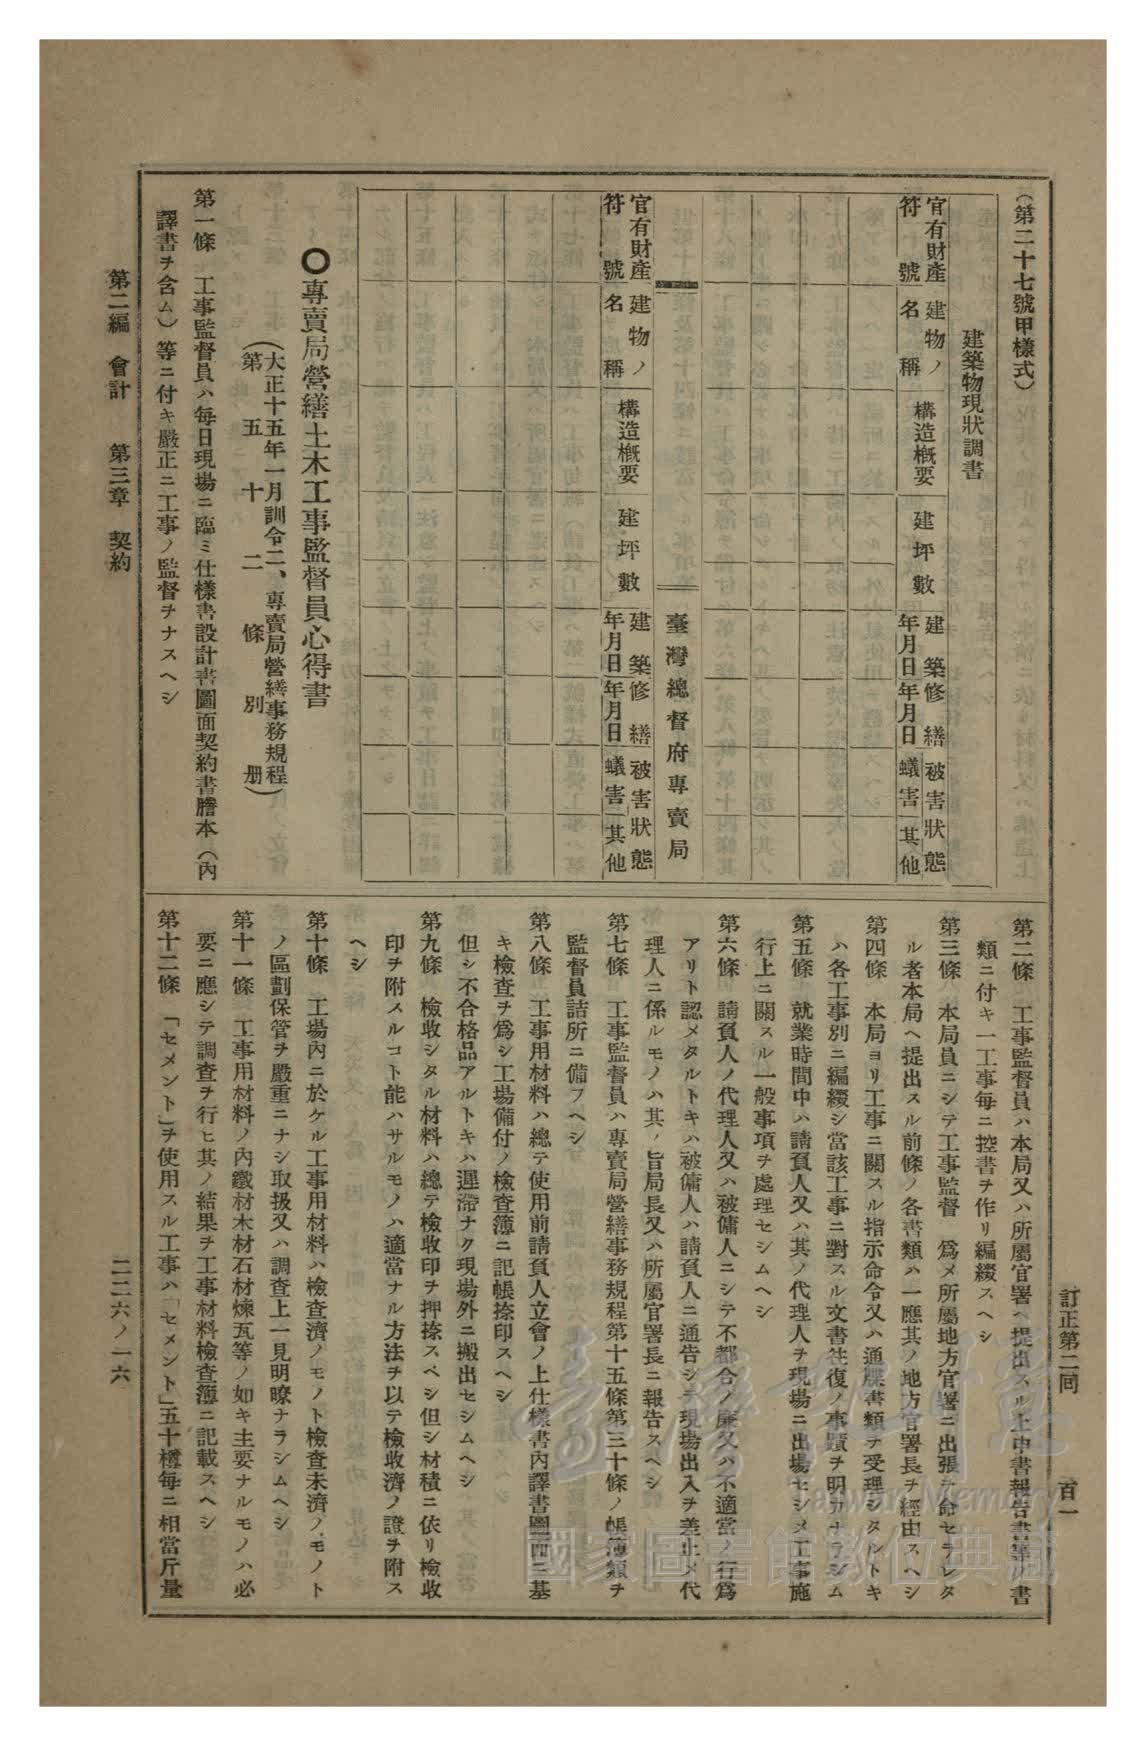 (第二十七號甲樣式)
建築物現狀調書
官有財產符號
建物ノ名稱
構造槪要
建坪數
建築年月日
修繕年月日
被害狀態
蟻害
其他
臺灣總督府專賣局
官有財產符號
建物ノ名稱
構造槪要
建坪數
建築年月日
修繕年月日
被害狀態
蟻害
其他
○專賣局營繕土木工事監督員心得書
(大正十五年一月訓令二、專賣局營繕事務規程
第五十二條別册)
第一條 工事監督員ハ每日現場ニ臨ミ仕樣書設計書圖面契約書謄本(內
譯書ヲ含ム)等ニ付キ嚴正ニ工事ノ監督ヲナスヘシ
第二條 工事監督員ハ本局又ハ所屬官署ヘ提出スル上申書報告書等ノ書
類ニ付キ一工事每ニ控書ヲ作リ編綴スヘシ
第三條 本局員ニシテ工事監督 爲メ所屬地方官署ニ出張ヲ命セラレタ
ル者本局ヘ提出スル前條ノ各書類ハ一應其ノ地方官署長ヲ經由スヘシ
第四條 本局ヨリ工事ニ關スル指示命令又ハ通牒書類ヲ受理シタルトキ
ハ各工事別ニ編綴シ當該工事ニ對スル文書往復ノ事蹟ヲ明カナラシム
第五條 就業時間中ハ請負人又ハ其ノ代理人ヲ現場ニ出場セシメ工事施
行上ニ關スル一般事項ヲ處理セシムヘシ
第六條 請負人ノ代理人又ハ被傭人ニシテ不都合ノ廉又ハ不適當ノ行爲
アリト認メタルトキハ被傭人ハ請負人ニ通告シテ現場出入ヲ差止メ代
理人ニ係ルモノハ其ノ旨局長又ハ所屬官署長ニ報告スヘシ
第七條 工事監督員ハ專賣局營繕事務規程第十五條第三十條ノ帳簿類ヲ
監督員詰所ニ備フヘシ
第八條 工事用材料ハ總テ使用前請負人立會ノ上仕樣書內譯書圖面ニ基
キ檢查ヲ爲シ工場備付ノ檢查簿ニ記帳捺印スヘシ
但シ不合格品アルトキハ遲滯ナク現場外ニ搬出セシムヘシ
第九條 檢收シタル材料ハ總テ檢收印ヲ押捺スベシ但シ材積ニ依リ檢收
印ヲ附スルコト能ハサルモノハ適當ナル方法ヲ以テ檢收濟ノ證ヲ附ス
ヘシ
第十條 工場內ニ於ケル工事用材料ハ檢查濟ノモノト檢查未濟ノモノト
ノ區劃保管ヲ嚴重ニナシ取扱又ハ調查上一見明瞭ナラシムヘシ
第十一條 工事用材料ノ內鐵材木材石材煉瓦等ノ如キ主要ナルモノハ必
要ニ應シテ調查ヲ行ヒ其ノ結果ヲ工事材料檢查簿ニ記載スヘシ
第十二條 「セメント」ヲ使用スル工事ハ「セメント」五十樽每ニ相當斤量
第二編 會計 第三章 契約
二二六ノ一六
訂正第二回
百一
臺灣記憶
Taiwan Memory
國家圖書館數位典藏